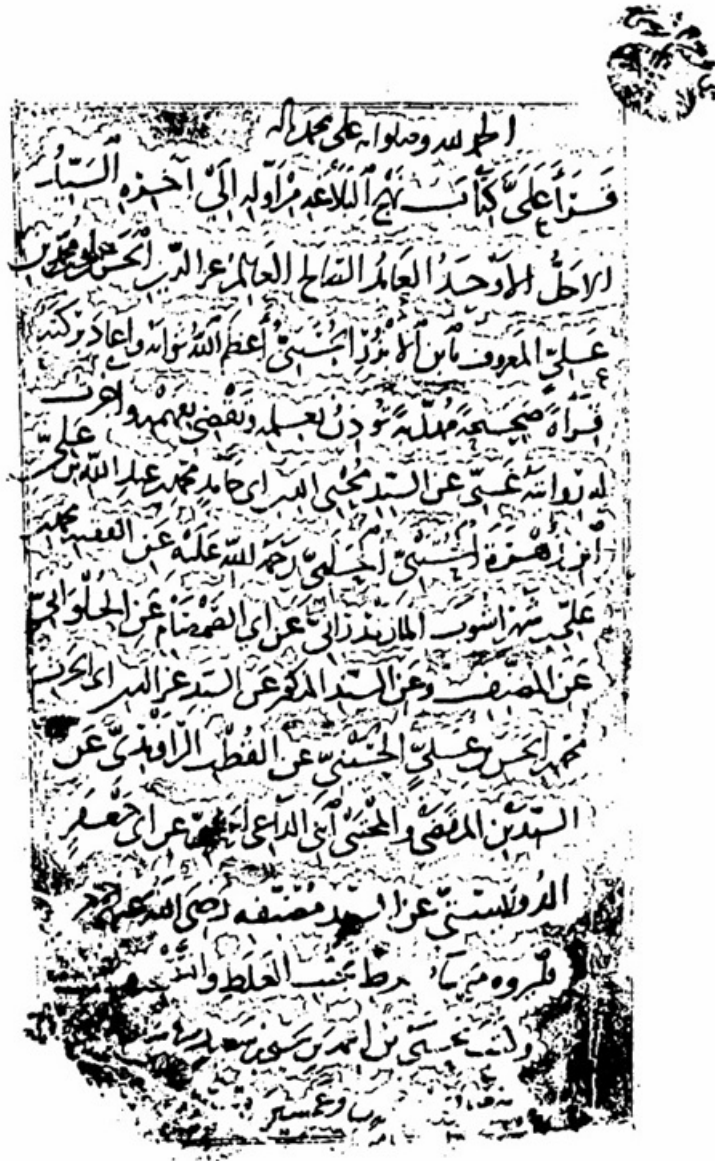 الحمد لله وصلواته على محمد وآله
قرأ علي كتاب نهج البلاغة من أوله إلى آخره السيد
الاجل الاوحد العالم الصالح العالم عز الدين الحسن بن محمد بن
علي المعروف بابن الابزر الحسيني أعظم الله ثوابه واعاد بركته
قراة صحيحة مهذبة تؤذن بعلمه وتقضي بفهمه واجزت
له روايته عني عن السيد محيي الدين ابي حامد محمد بن عبد الله بن علي
بن زهرة الحسيني الحلبي رحمة الله عليه عن الفقيه محمد بن
علي بن شهراشوب المازندراني عن ابي الصمصام عن الحلواني
عن المصنف وعن السيد المذكور عن السيد عز الدين ابي الحرث
محمد بن الحسن بن علي الحسيني عن القطب الراوندي عن
السيدين المرتضى والمجتبى ابني الداعي عن ابي جعفر
الدوريستي عن السيد مصنفه رضي الله عنه
فليروه متى شاء تجنب الغلط والتصحيف
وكتب يحيى بن احمد بن يحيى بن سعيد
وخمسين